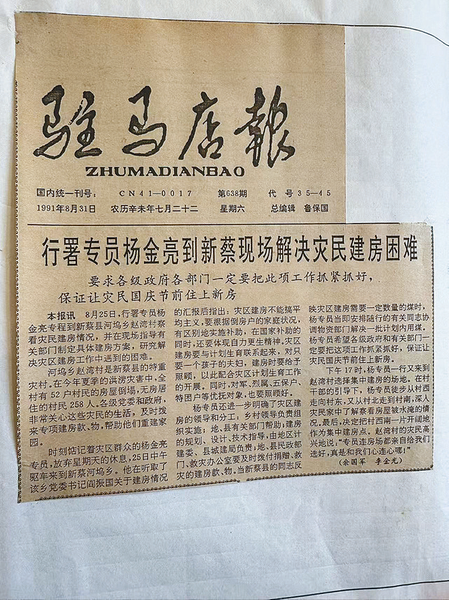 驻马店报
ZHUMADIANBAO
国内统一刊号： CN41—0017 第638期 代号35—45
1991年8月31日 农历辛未年七月二十二 星期六 总编辑 鲁保国
行署专员杨金亮到新蔡现场解决灾民建房困难
要求各级政府各部门一定要把此项工作抓紧抓好，
保证让灾民国庆节前住上新房
本报讯 8月25日，行署专员杨
金亮专程到新蔡县河坞乡赵湾村察
看灾民建房情况，并在现场指导有
关部门制定具体建房方案，研究解
决灾区建房工作中遇到的困难。
河坞乡赵湾村是新蔡县的特重
灾村，在今年夏季的洪涝灾害中，全
村有52户村民的房屋倒塌，无房居
住的村民258人，各级党委和政府，
非常关心这些灾民的生活，及时拨
来专项建房款、物，帮助他们重建家
园。
时刻惦记着灾区群众的杨金亮
专员，放弃星期天的休息，25日中午
驱车来到新蔡河坞乡。他在听取了
该乡党委书记阎报国关于建房情况
的汇报后指出，灾区建房不能搞平
均主义，要根据倒房户的家庭状况，
有区别地实施补助，在国家补助的
同时，还要体现自力更生精神，灾区
建房要与计划生育联系起来，对只
要一个孩子的夫妇，建房时要给予
照顾，以此配合灾区计划生育工作
的开展。同时，对军、烈属、五保户、
特困户等优抚对象，也要照顾好。
杨专员还进一步明确了灾区建房
的领导和分工：乡村领导负责组
织实施；地、县有关部门帮助；建房
的规划、设计、技术指导，由地区计
建委、县城建局负责；地、县民政部
门、救灾办公室要及时拨付捐赠、救
灾的建房款、物，当新蔡县的同志反
映灾区建房需要一定数量的煤时，
杨专员当即安排随行的有关同志协
调物资部门解决一批计划内用煤。
杨专员希望各级政府和有关部门一
定要把这项工作抓紧抓好，保证让
灾民国庆节前住上新房。
下午17时，杨专员一行又来到
赵湾村选择集中建房的场地。在村
干部的引导下，杨专员徒步从村西
走向村东，又从村北走到村南，深入
灾民家中了解察看房屋被水淹的情
况。最后，决定把村西南一片开阔地
作为集中建房点。赵湾村的灾民高
兴地说：“专员连房场都亲自给我们
选好，真是和我们心连心哪！”
（余国军 李金光）